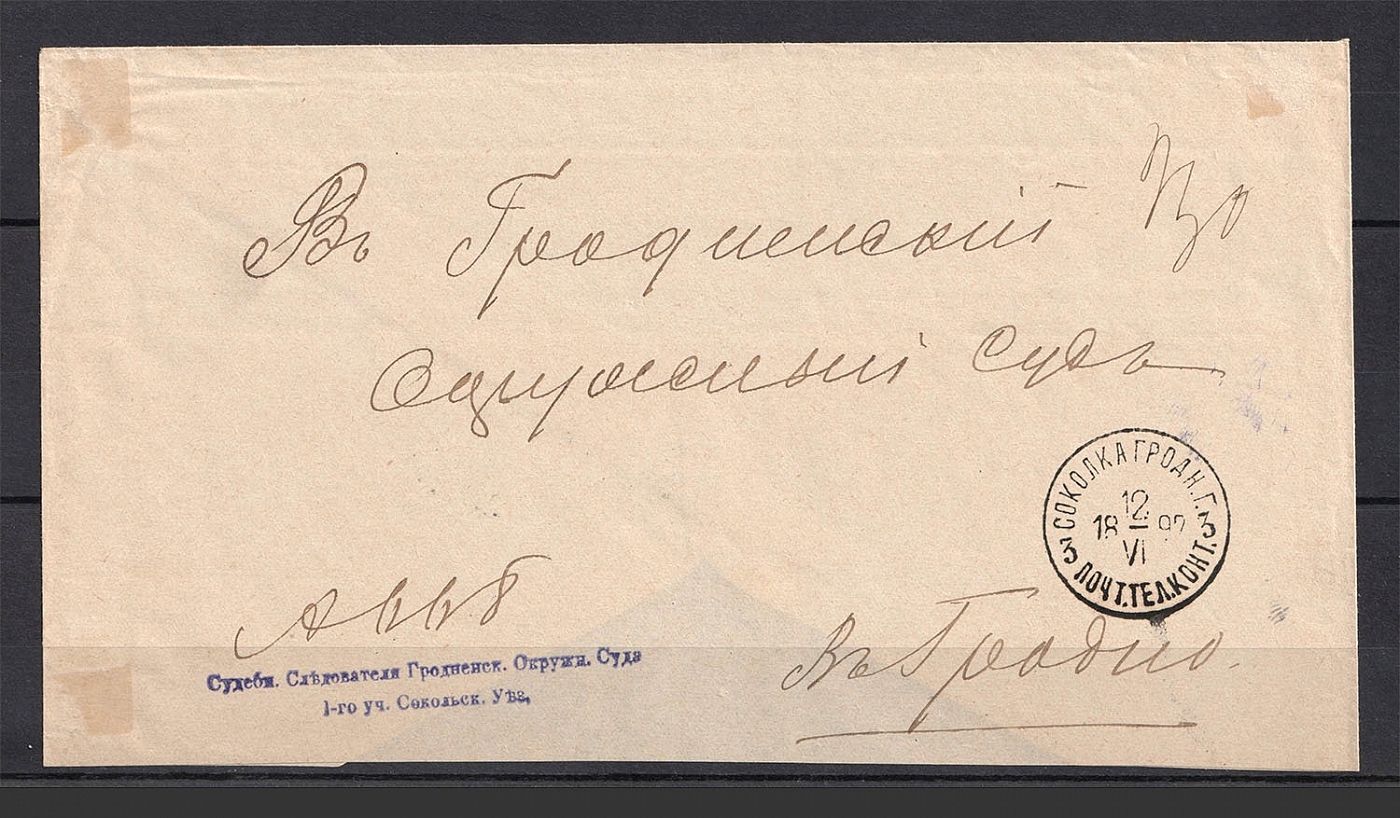 Въ Гродненскій
Окружный Судъ
СОКОЛКА ГРОДН. Г.
12
18 97
VI
3 3
ПОЧТ. ТЕЛ. КОНТ.
Въ Гродно.
Судебн. Слѣдователя Гродненск. Окружн. Суда
1-го уч. Сокольск. Уѣз.